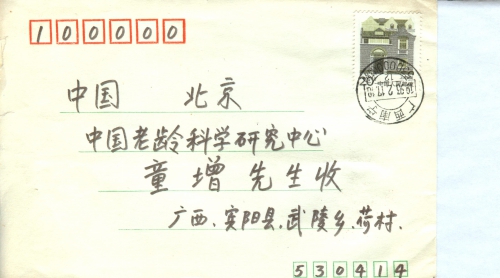 100000
中国 北京
中国老龄科学研究中心
童增先生收
广西、宾阳县、武陵乡、荷村.
530414
广西南宁